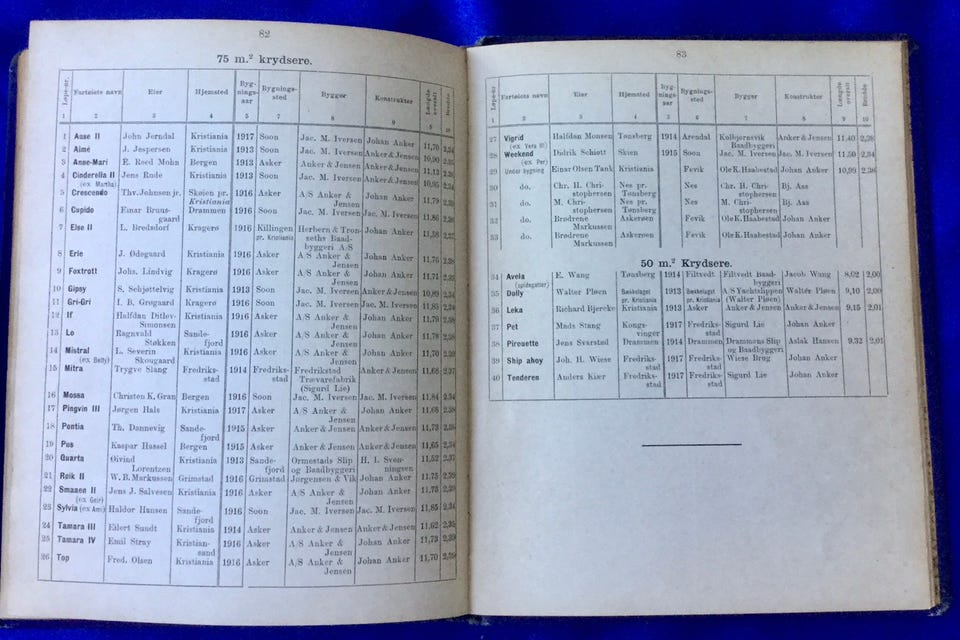 82
75 m.² krydsere.
Løpe-nr. Fartøiets navn Eier Hjemsted Bygningsaar Bygningssted Bygger Konstruktør Længde overalt Bredde
1 2 3 4 5 7 8 9 10
1 Anse II John Jerndal Kristiania 1917 Soon Jac. M. Iversen Johan Anker 11,70 2,34
2 Aimé J. Jespersen Kristiania 1913 Soon Jac. M. Iversen Anker & Jensen 10,90
3 Anne-Mari E. Roed Mohn Bergen 1913 Asker Anker & Jensen Anker & Jensen 11,13
4 Cinderella II Jens Rude Kristiania 1913 Soon Jac. M. Iversen Anker & Jensen 10,95
(ex. Martha)
5 Crescendo Thv. Johnsen jr. Skøien pr. Kristiania 1916 Asker A/S Anker & Jensen Johan Anker 11,79
6 Cupido Einar Bruusgaard Drammen 1916 Soon Jac. M. Iversen Jac. M. Iversen 11,86
7 Else II L. Bredsdorf Kragerø 1916 Killingen pr. Kristiania Herbern & Tronseths Baadbyggeri A/S Johan Anker 11,58
8 Erle J. Ødegaard Kristiania 1916 Asker A/S Anker & Jensen Johan Anker 11,76
9 Foxtrott Johs. Lindvig Kragerø 1916 Asker A/S Anker & Jensen Johan Anker 11,71
10 Gipsy S. Schjøttelvig Kristiania 1913 Soon Jac. M. Iversen Jac. M. Iversen 10,89 2,34
11 Gri-Gri I. B. Grøgaard Kragerø 1916 Soon Jac. M. Iversen Jac. M. Iversen 11,85 2,34
12 If Halfdan Ditlev-Simonsen Kristiania 1916 Asker A/S Anker & Jensen Johan Anker 11,79 2,38
13 Lo Ragnvald Støkken Sandefjord 1916 Asker A/S Anker & Jensen Johan Anker 11,78 2,38
14 Mistral L. Severin Skougaard Kristiania 1916 Asker A/S Anker & Jensen Johan Anker 11,70
(ex. Betty)
15 Mitra Trygve Slang Fredrikstad 1914 Fredriksstad Fredrikstad Trævarefabrik (Sigurd Lie) Anker & Jensen 11,68
16 Mossa Christen K. Gran Bergen 1916 Soon Jac. M. Iversen Jac. M. Iversen 11,84 2,34
17 Pingvin III Jørgen Hals Kristiania 1917 Asker A/S Anker & Jensen Johan Anker 11,68 2,38
18 Pontia Th. Dannevig Sandefjord 1915 Asker Anker & Jensen Anker & Jensen 11,73
19 Pus Kaspar Hassel Bergen 1915 Asker Anker & Jensen Anker & Jensen 11,65 2,34
20 Quarta Øivind Lorentzen Kristiania 1913 Sandefjord Ormestads Slip og Baadbyggeri H. I. Svenningsen 11,52 2,37
21 Reik II W. B. Markussen Grimstad 1916 Grimstad Jørgensen & Vik Johan Anker 11,75 2,39
22 Smaaen II Jens J. Salvesen Kristiania 1916 Asker A/S Anker & Jensen Johan Anker 11,73
(ex Geir)
23 Sylvia (ex Ami) Haldor Hansen Sandefjord 1916 Soon Jac. M. Iversen Jac. M. Iversen 11,85 2,34
24 Tamara III Eilert Sundt Kristiania 1914 Asker Anker & Jensen Anker & Jensen 11,62
25 Tamara IV Emil Stray Kristiansand 1916 Asker A/S Anker & Jensen Johan Anker 11,73 2,39
26 Top Fred. Olsen Kristiania 1916 Asker A/S Anker & Jensen Johan Anker 11,70
83
Løpe-nr. Fartøiets navn Eier Hjemsted Bygningsaar Bygningssted Bygger Konstruktør Længde overalt Bredde
1 2 3 4 5 6 7 8 9 10
27 Vigrid Halfdan Monsen Tønsberg 1914 Arendal Kolbjørnsvik Baadbyggeri Anker & Jensen 11,40 2,38
(ex Vera III)
28 Weekend Didrik Schiøtt Skien 1915 Soon Jac. M. Iversen Jac. M. Iversen 11,50 2,34
(ex Per)
29 Under bygning Einar Olsen Tank Kristiania Fevik Ole K. Haabestad Johan Anker 10,99 2,36
30 do. Chr. H. Christophersen Nes pr. Tønsberg Nes Chr. H. Christophersen Bj. Aas
31 do. M. Christophersen Nes pr. Tønsberg Nes M. Christophersen Bj. Aas
32 do. Brødrene Markussen Askerøen Fevik Ole K. Haabestad Johan Anker
33 do. Brødrene Markussen Askerøen Fevik Ole K. Haabestad Johan Anker
50 m.² Krydsere.
34 Avela E. Wang Tønsberg 1914 Filtvedt Filtvedt Baadbyggeri Jacob Wang 8,02 2,00
(spidsgatter)
35 Dolly Walter Pløen Bækkelaget pr. Kristiania 1915 Bækkelaget pr. Kristiania A/S Yachtslippen (Walter Pløen) Walter Pløen 9,10 2,00
36 Leka Richard Bjercke Kristiania 1913 Asker Anker & Jensen Anker & Jensen 9,15 2,01
37 Pet Mads Stang Kongsvinger 1917 Fredriksstad Sigurd Lie Johan Anker
38 Pirouette Jens Svarstad Drammen 1914 Drammen Drammens Slip og Baadbyggeri Aslak Hansen 9,32 2,01
39 Ship ahoy Joh. H. Wiese Fredriksstad 1917 Fredriksstad Wiese Brug Johan Anker
40 Tenderen Anders Kiær Fredriksstad 1917 Fredriksstad Sigurd Lie Johan Anker